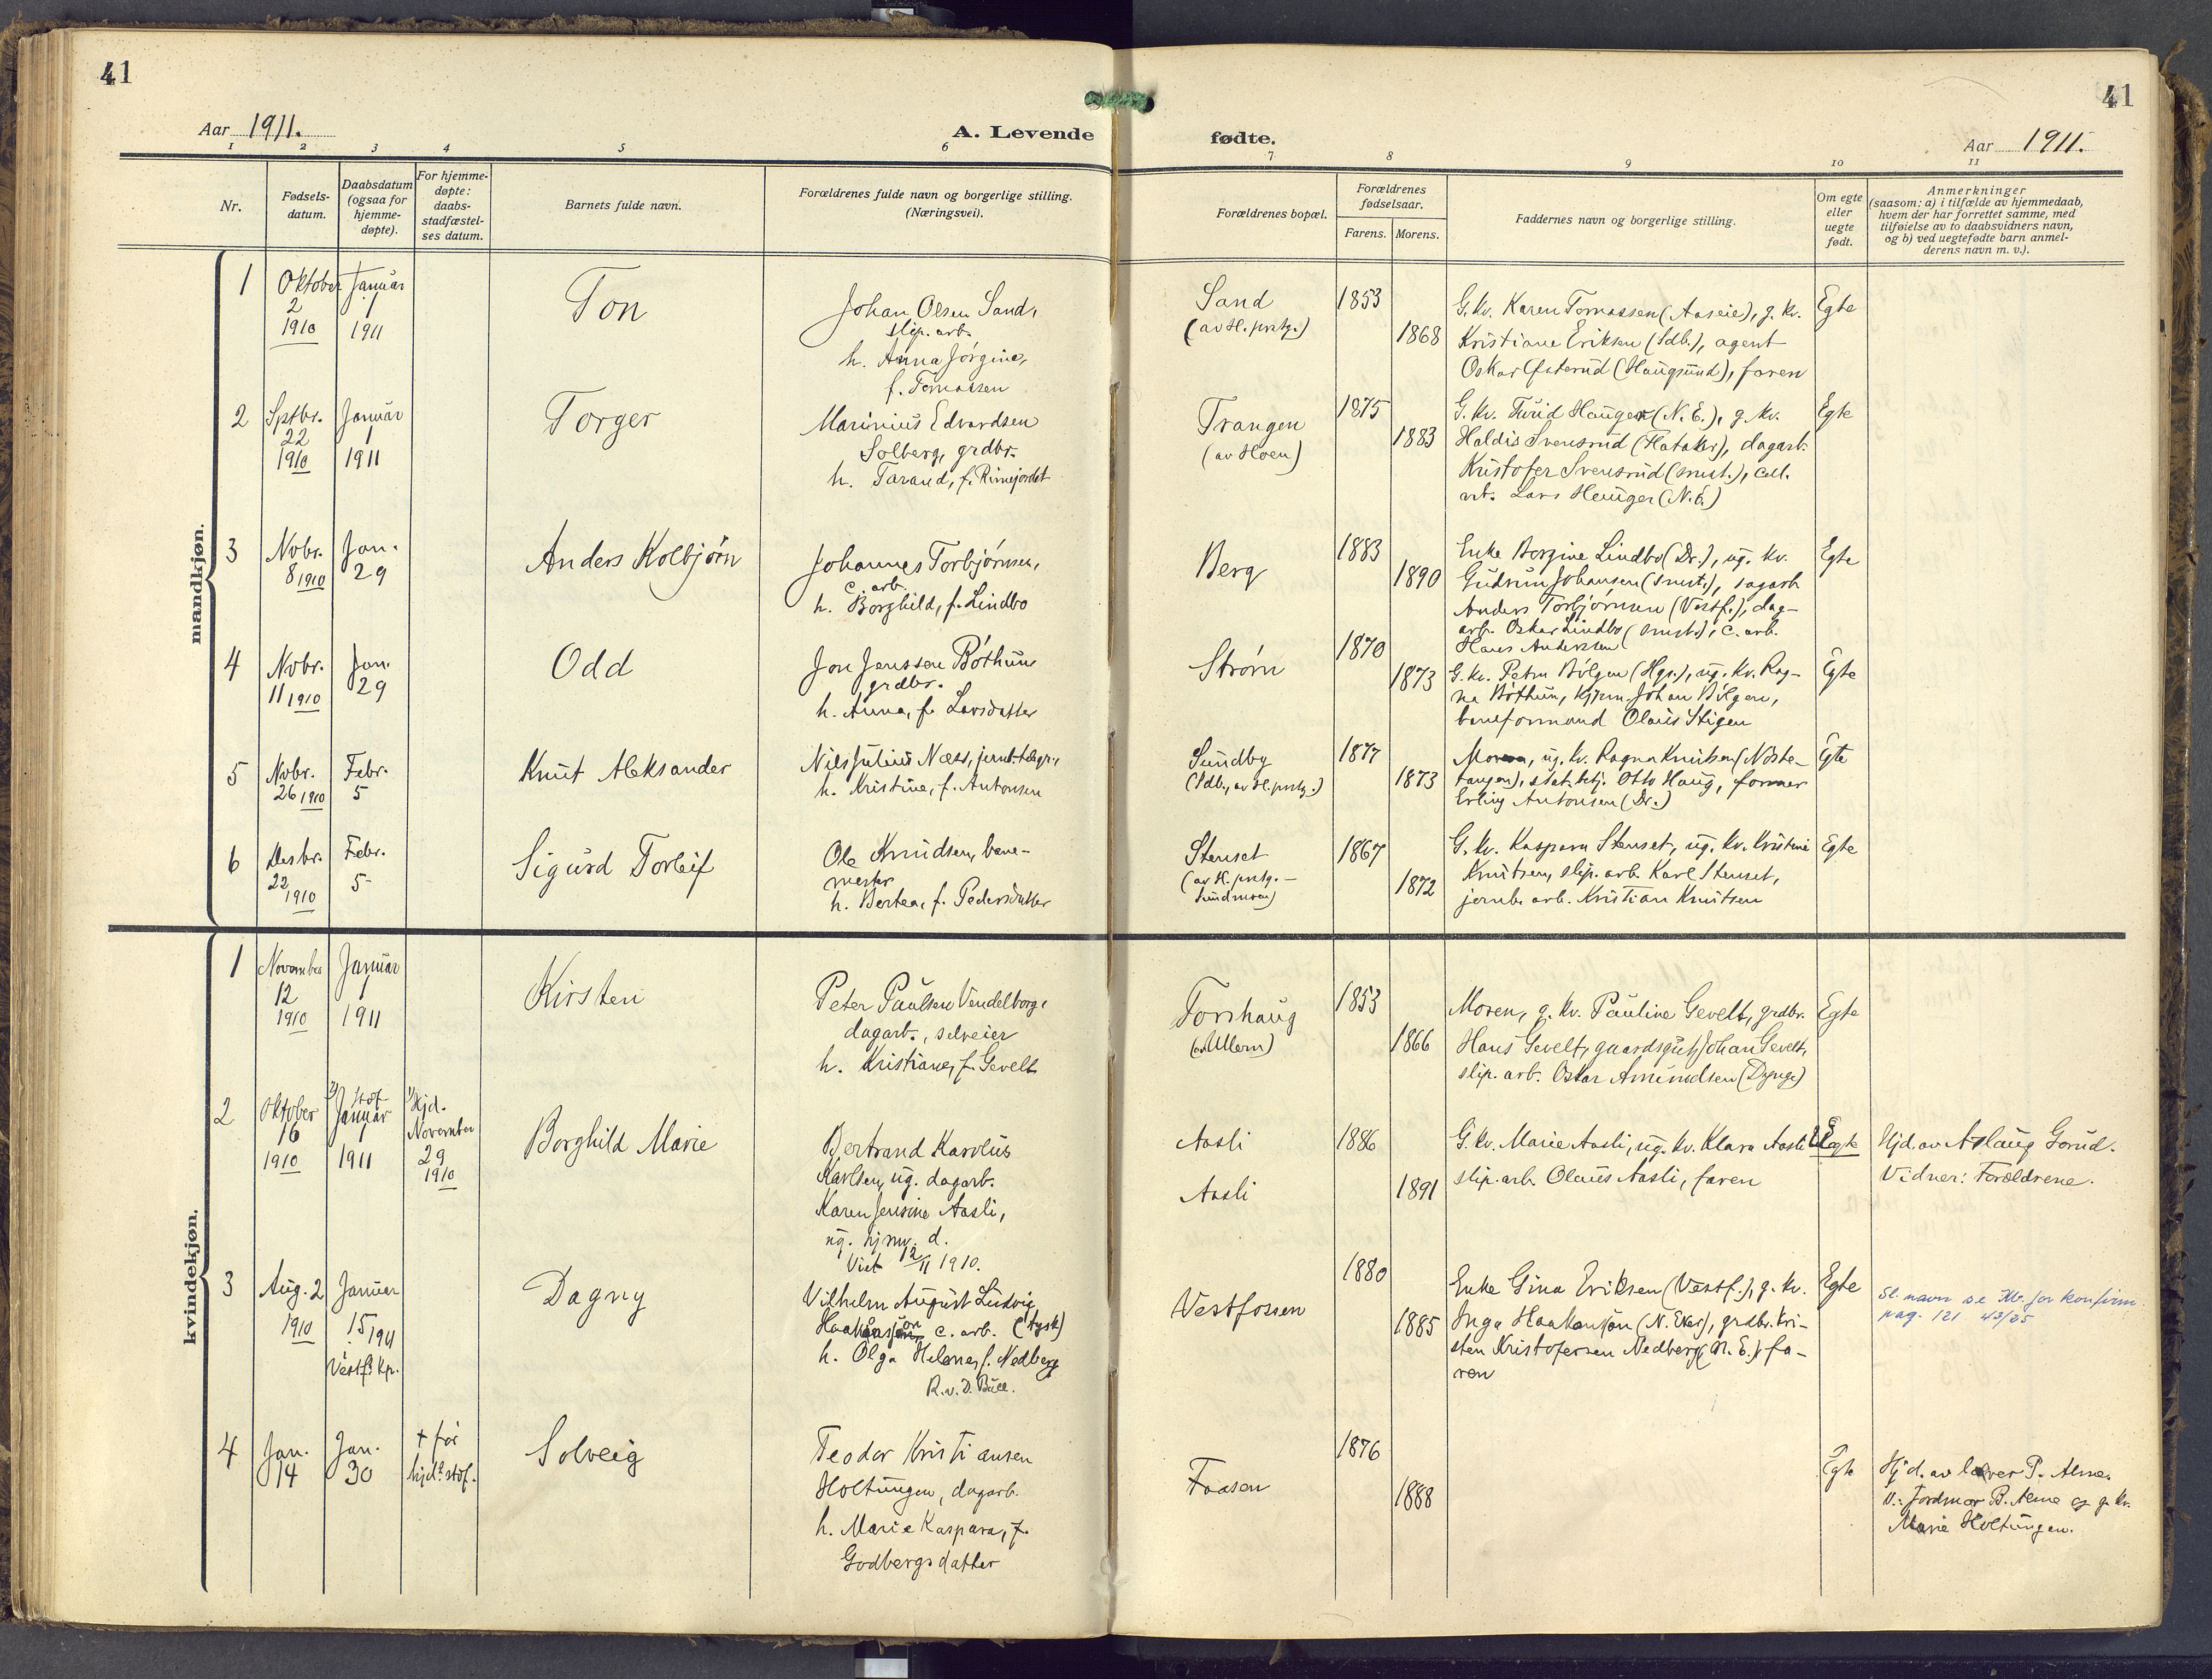 41
41
Aar 1911.
A. Levende
fødte.
Aar 1911.
1 2 3 4 5 6 7 8 9 10 11
Nr.
Fødsels-
datum.
Daabsdatum
(ogsaa for
hjemme-
døpte).
For hjemme-
døpte:
daabs-
stadfæstel-
ses datum.
Barnets fulde navn.
Forældrenes fulde navn og borgerlige stilling.
(Næringsvei).
Forældrenes bopæl.
Forældrenes
fødselsaar.
Farens. Morens.
Faddernes navn og borgerlige stilling.
Om egte
eller
uegte
født.
Anmerkninger
(saasom: a) i tilfælde av hjemmedaab,
hvem der har forrettet samme, med
tilføielse av to daabsvidners navn,
og b) ved uegtefødte barn anmel-
derens navn m. v.).
mandkjøn.
1
Oktober
2
1910
Januar
1
1911
Ton
Johan Olsen Sand,
slip. arb.
h. Anna Jørgine,
f. Tomassen
Sand
(av H. prstg.)
1853
1868
G. kv. Karen Tomassen (Aaseie), g. kv.
Kristiane Eriksen (Sdb.), agent
Oskar Østerud (Haugsund), faren
Egte
2
Sptbr.
22
1910
Januar
1
1911
Torger
Marinius Edvardsen
Solberg, grdbr.
h. Tarand, f. Rimejordet
Trangen
(av Hoen)
1875
1883
G. kv. Turid Hauger (N. E.), g. kv.
Haldis Svensrud (Flataker), dagarb.
Kristofer Svensrud (smst.), cell.
arb. Lars Hauger (N. E.)
Egte
3
Nvbr.
8 1910
Jan.
29
Anders Kolbjørn
Johannes Torbjørnsen,
c. arb.
h. Borghild, f. Lindbo
Berg
1883
1890
Enke Borgine Lindbo (Dr.), ug. kv.
Gudrun Johansen (smst.), dagarb.
Anders Torbjørnsen (Vestf.), dag-
arb. Oskar Lindbo (smst.), c. arb.
Hans Andersen
Egte
4
Nvbr.
11 1910
Jan.
29
Odd
Jon Jenssen Bøthun
grdbr.
h. Anna, f. Larsdatter
Strøm
1870
1873
G. kv. Petra Bølgen (Hgs.), ug. kv. Rag-
na Bøthun, kjørm. Johan Bølgen,
baneformand Olaus Stigen
Egte
5
Nvbr.
26 1910
Febr.
5
Knut Aleksander
Nils Julius Næss, jernb. telegr.,
h. Kristine, f. Antonsen
Sundby
(Sdb., av H. prstg.)
1877
1873
Moren, ug. kv. Ragna Knutsen (Nøste-
tangen), stat. betj. Otto Haug, former
Erling Antonsen (Dr.)
Egte
6
Desbr.
22
1910
Febr.
5
Sigurd Torleif
Ole Knudsen, bane-
mester
h. Bertea, f. Pedersdatter
Stenset
(av H. prstg. -
Sundmoen)
1867
1872
G. kv. Kaspara Stenset, ug. kv. Kristine
Knutsen, slip. arb. Karl Stenset,
jernb. arb. Kristian Knutsen
Egte
kvindekjøn.
1
November
12
1910
Januar
1
1911
Kirsten
Peter Paulsen Vendelborg,
dagarb., selveier
h. Kristiane, f. Gevelt
Torshaug
(Ullern)
1853
1866
Moren, g. kv. Pauline Gevelt, grdbr.
Hans Gevelt, gaardsgut Johan Gevelt,
slip. arb. Oskar Amundsen (Dynge)
Egte
2
Oktober
16
1910
2) Stof.
Januar
1
1911
1) Hjd.
November
29
1910
Borghild Marie
Bertrand Karolius
Karlsen, ug. dagarb.
Karen Jensine Aasli,
ug. hjmv. d.
Viet 12/11 1910.
Aasli
Aasli
1886
1891
G. kv. Marie Aasli, ug. kv. Klara Aasli
slip. arb. Olaus Aasli, faren
Uegte
Hjd. av Aslaug Gorud.
Vidner: Forældrene.
3
Aug. 2
1910
Januar
15 1911
Vestfs. kp.
Dagny
Vilhelm August Ludvig
Haakanson c. arb. (tysk)
h. Olga Helene, f. Nedberg
R. v. D. Bull.
Vestfossen
1880
1885
Enke Gina Eriksen (Vestf.), g. kv.
Inga Haakanson (N. Eker), grdbr. Kri-
sten Kristofersen Nedberg (N. E.), fa-
ren
Egte
Sl. navn se Kb. for konfirm.
pag. 121 43/25
4
Jan.
14
Jan.
30
† før
hjd.s stof.
Solveig
Teodor Kristiansen
Holtungen, dagarb.
h. Marie Kaspara, f.
Godbergsdatter
Faasen
1876
1888
Egte
Hjd. av lærer P. Alme.
V.: Jordmor B. Alme og g. kv.
Marie Holtungen.